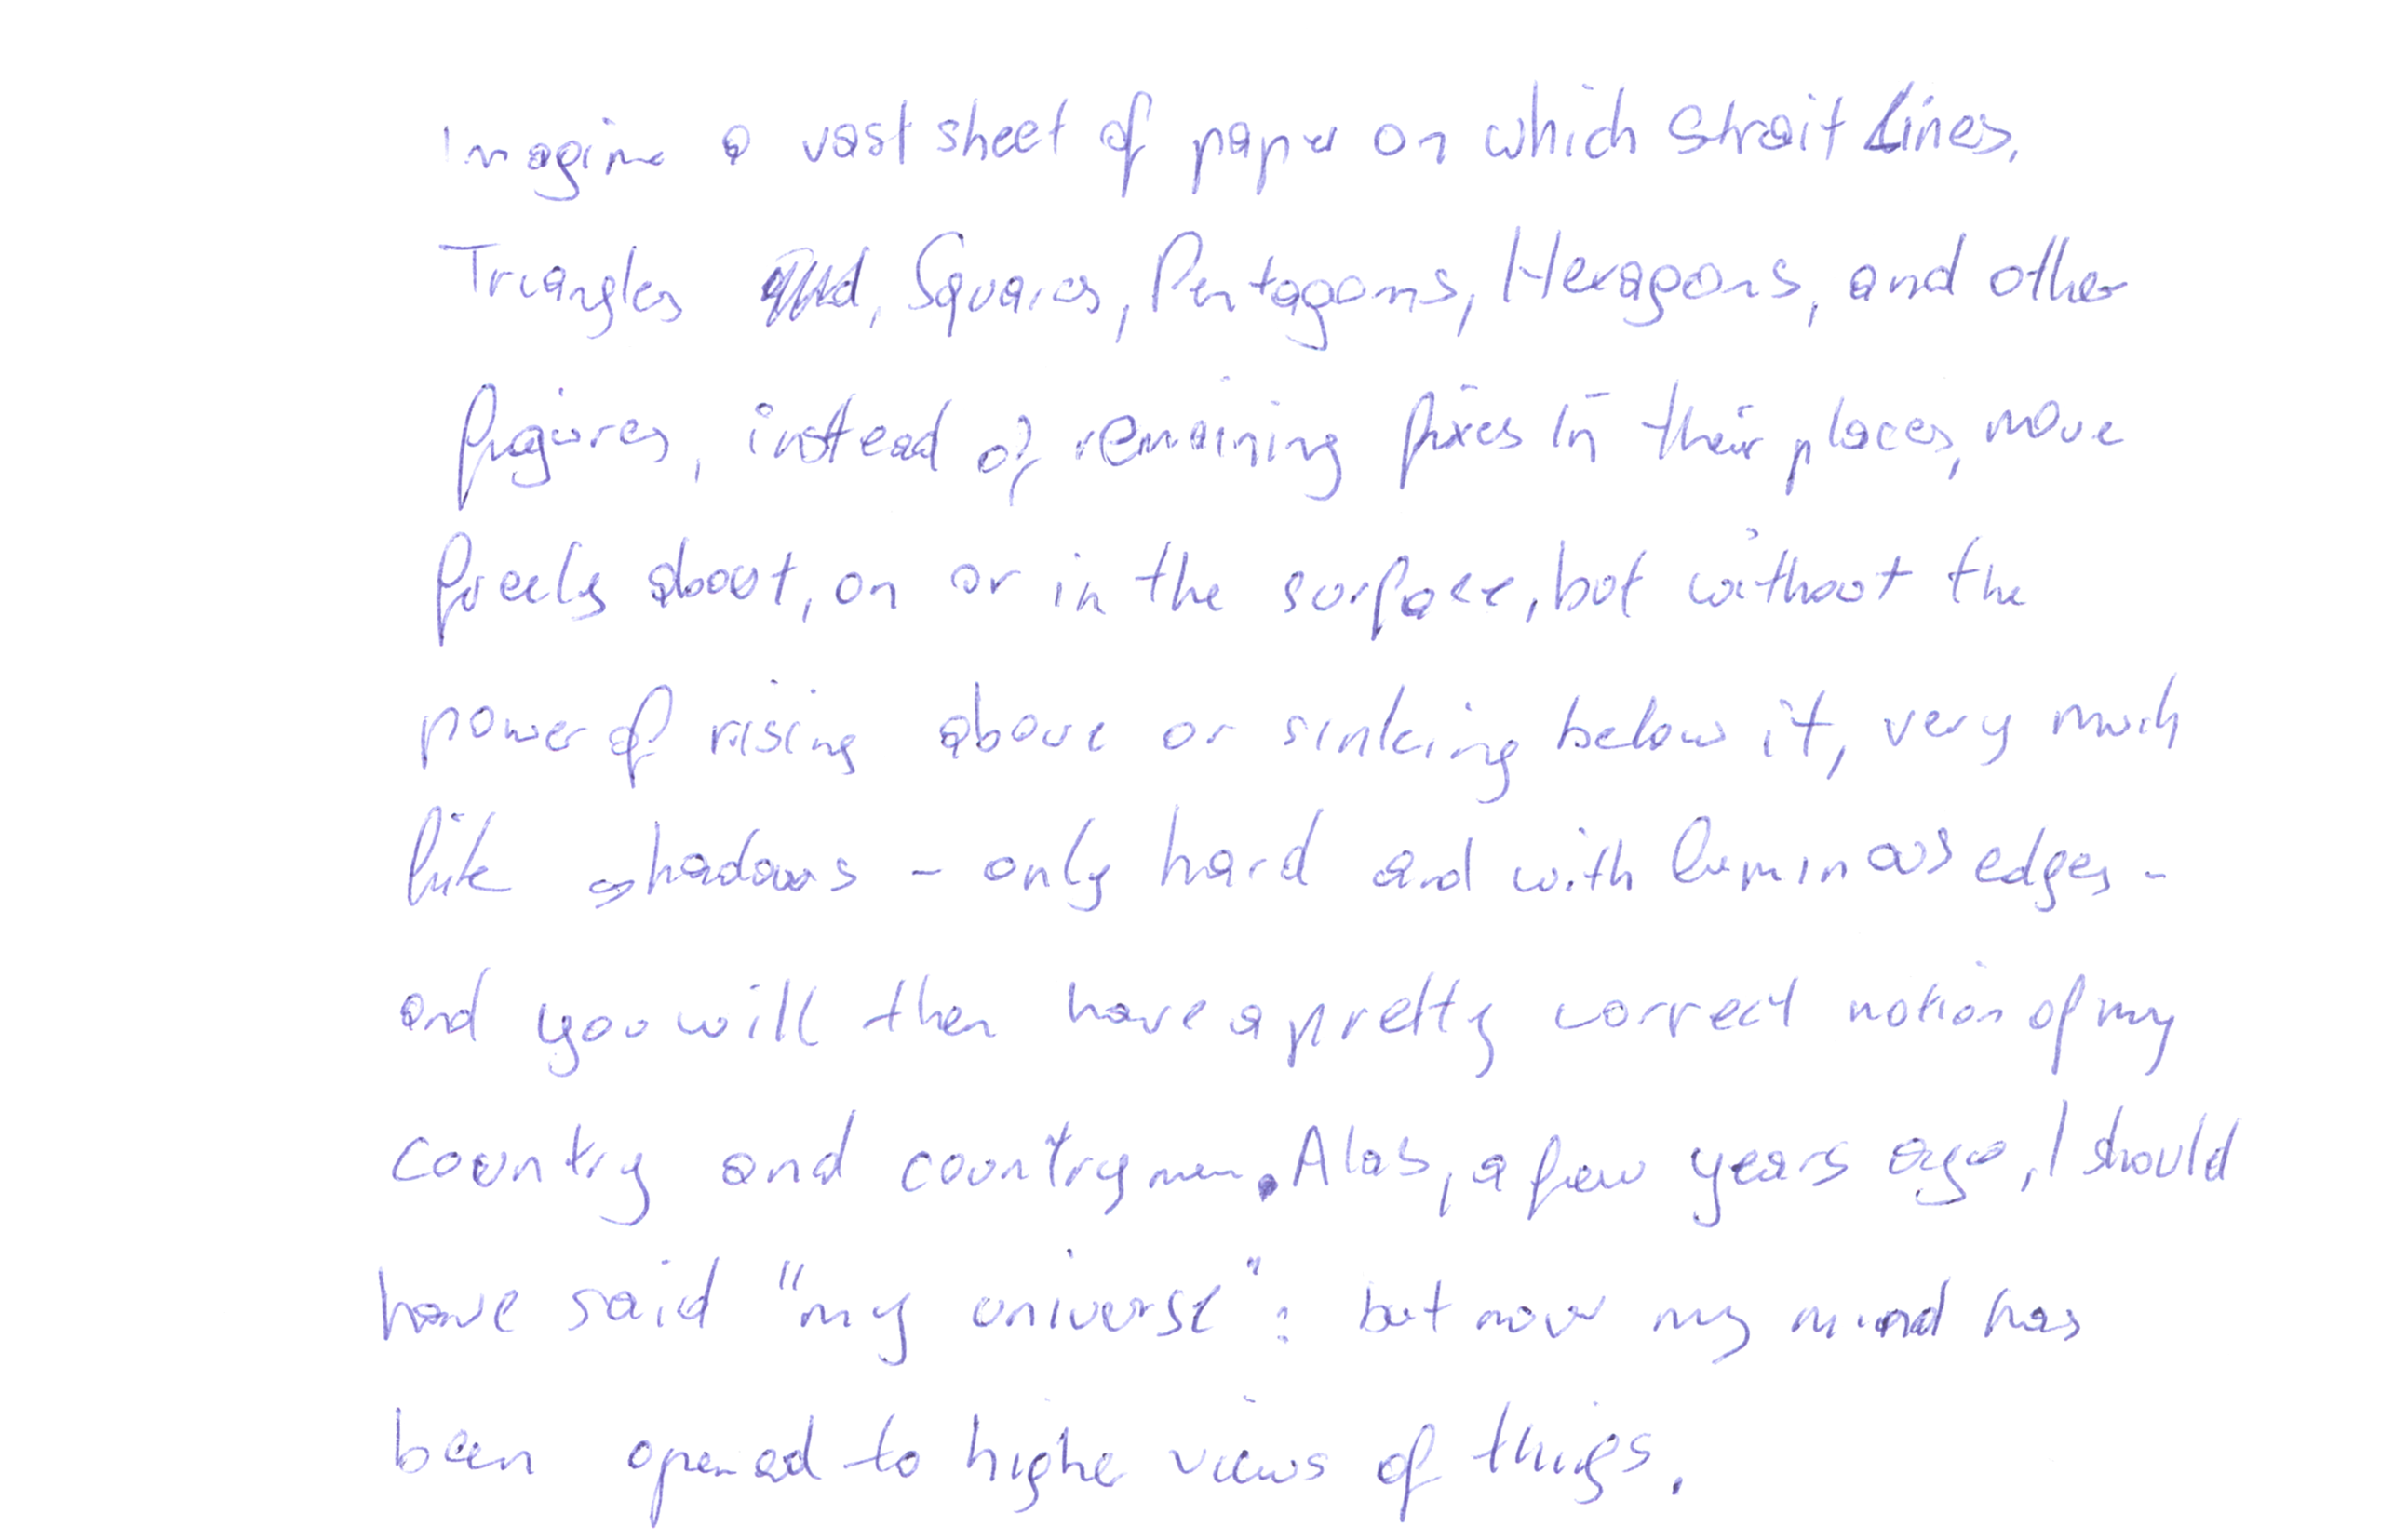 Imagine a vast sheet of paper on which strait Lines,
Triangles, Squares, Pentagons, Hexagons, and other
figures, instead of remaining fixes in their places, move
freely about, on or in the surface, but without the
power of rising above or sinking below it, very much
like shadows - only hard and with luminous edges -
and you will then have a pretty correct notion of my
country and countrymen. Alas, a few years ago, I should
have said "my universe": but now my mind has
been opened to higher views of things.